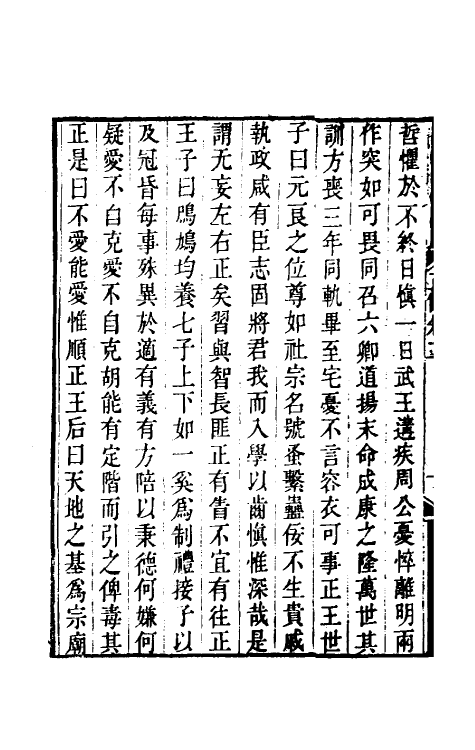 哲懼於不終日慎一日武王遘疾周公憂悴離明兩
作突如可畏同召六卿道揚末命成康之隆萬世其
訓方喪三年同軌畢至宅憂不言容衣可事正王世
子曰元良之位尊如社宗名號蚤繫蠱佞不生貴戚
執政咸有臣志固將君我而入學以齒慎惟深哉是
謂无妄左右正矣習與智長匪正有眚不宜有往正
王子曰鳲鳩均養七子上下如一奚為制禮接子以
及冠昏每事殊異於適有義有方陪以秉德何嫌何
疑愛不白克愛不自克胡能有定階而引之俾毒其
正是曰不愛能愛惟順正王后曰天地之基為宗廟